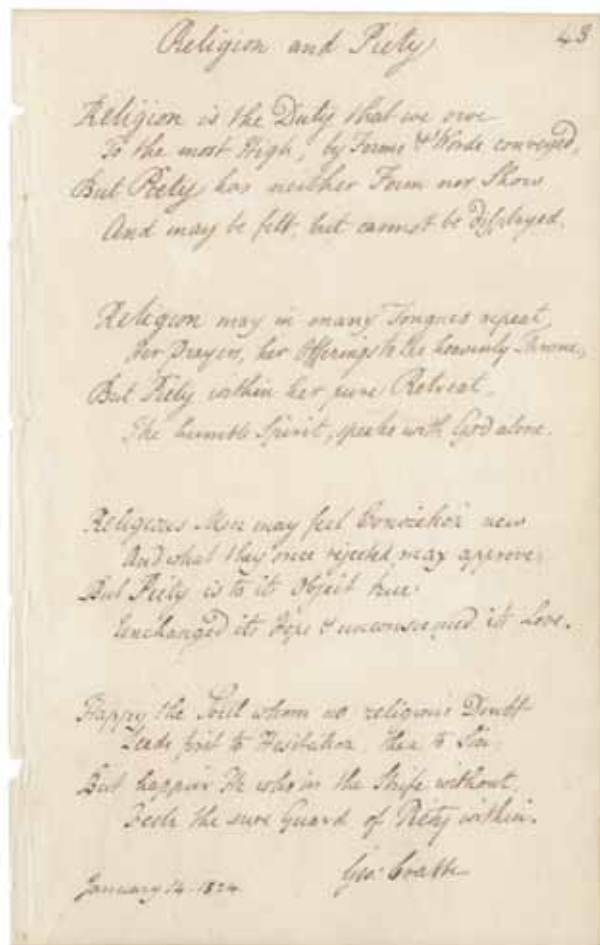 43
Religion and Piety
Religion is the Duty that we owe
To the most High, by Forms & Words conveyed,
But Piety has neither Form nor Show
And may be felt, but cannot be displayed.
Religion may in many Tongues repeat
Her Prayers, her Offerings to the heavenly Throne,
But Piety within her pure Retreat,
The humble Spirit, speaks with God alone.
Religious Men may feel Conviction new
And what they once rejected, may approve;
But Piety is to its Object true
Unchanged its Hope & its Love.
Happy the Soul whom no religious Doubt
Leads first to Hesitation, then to Sin.
But happier He who in the Strife without
Feels the sure Guard of Piety within.
Geo: Crabbe
January 14. 1824